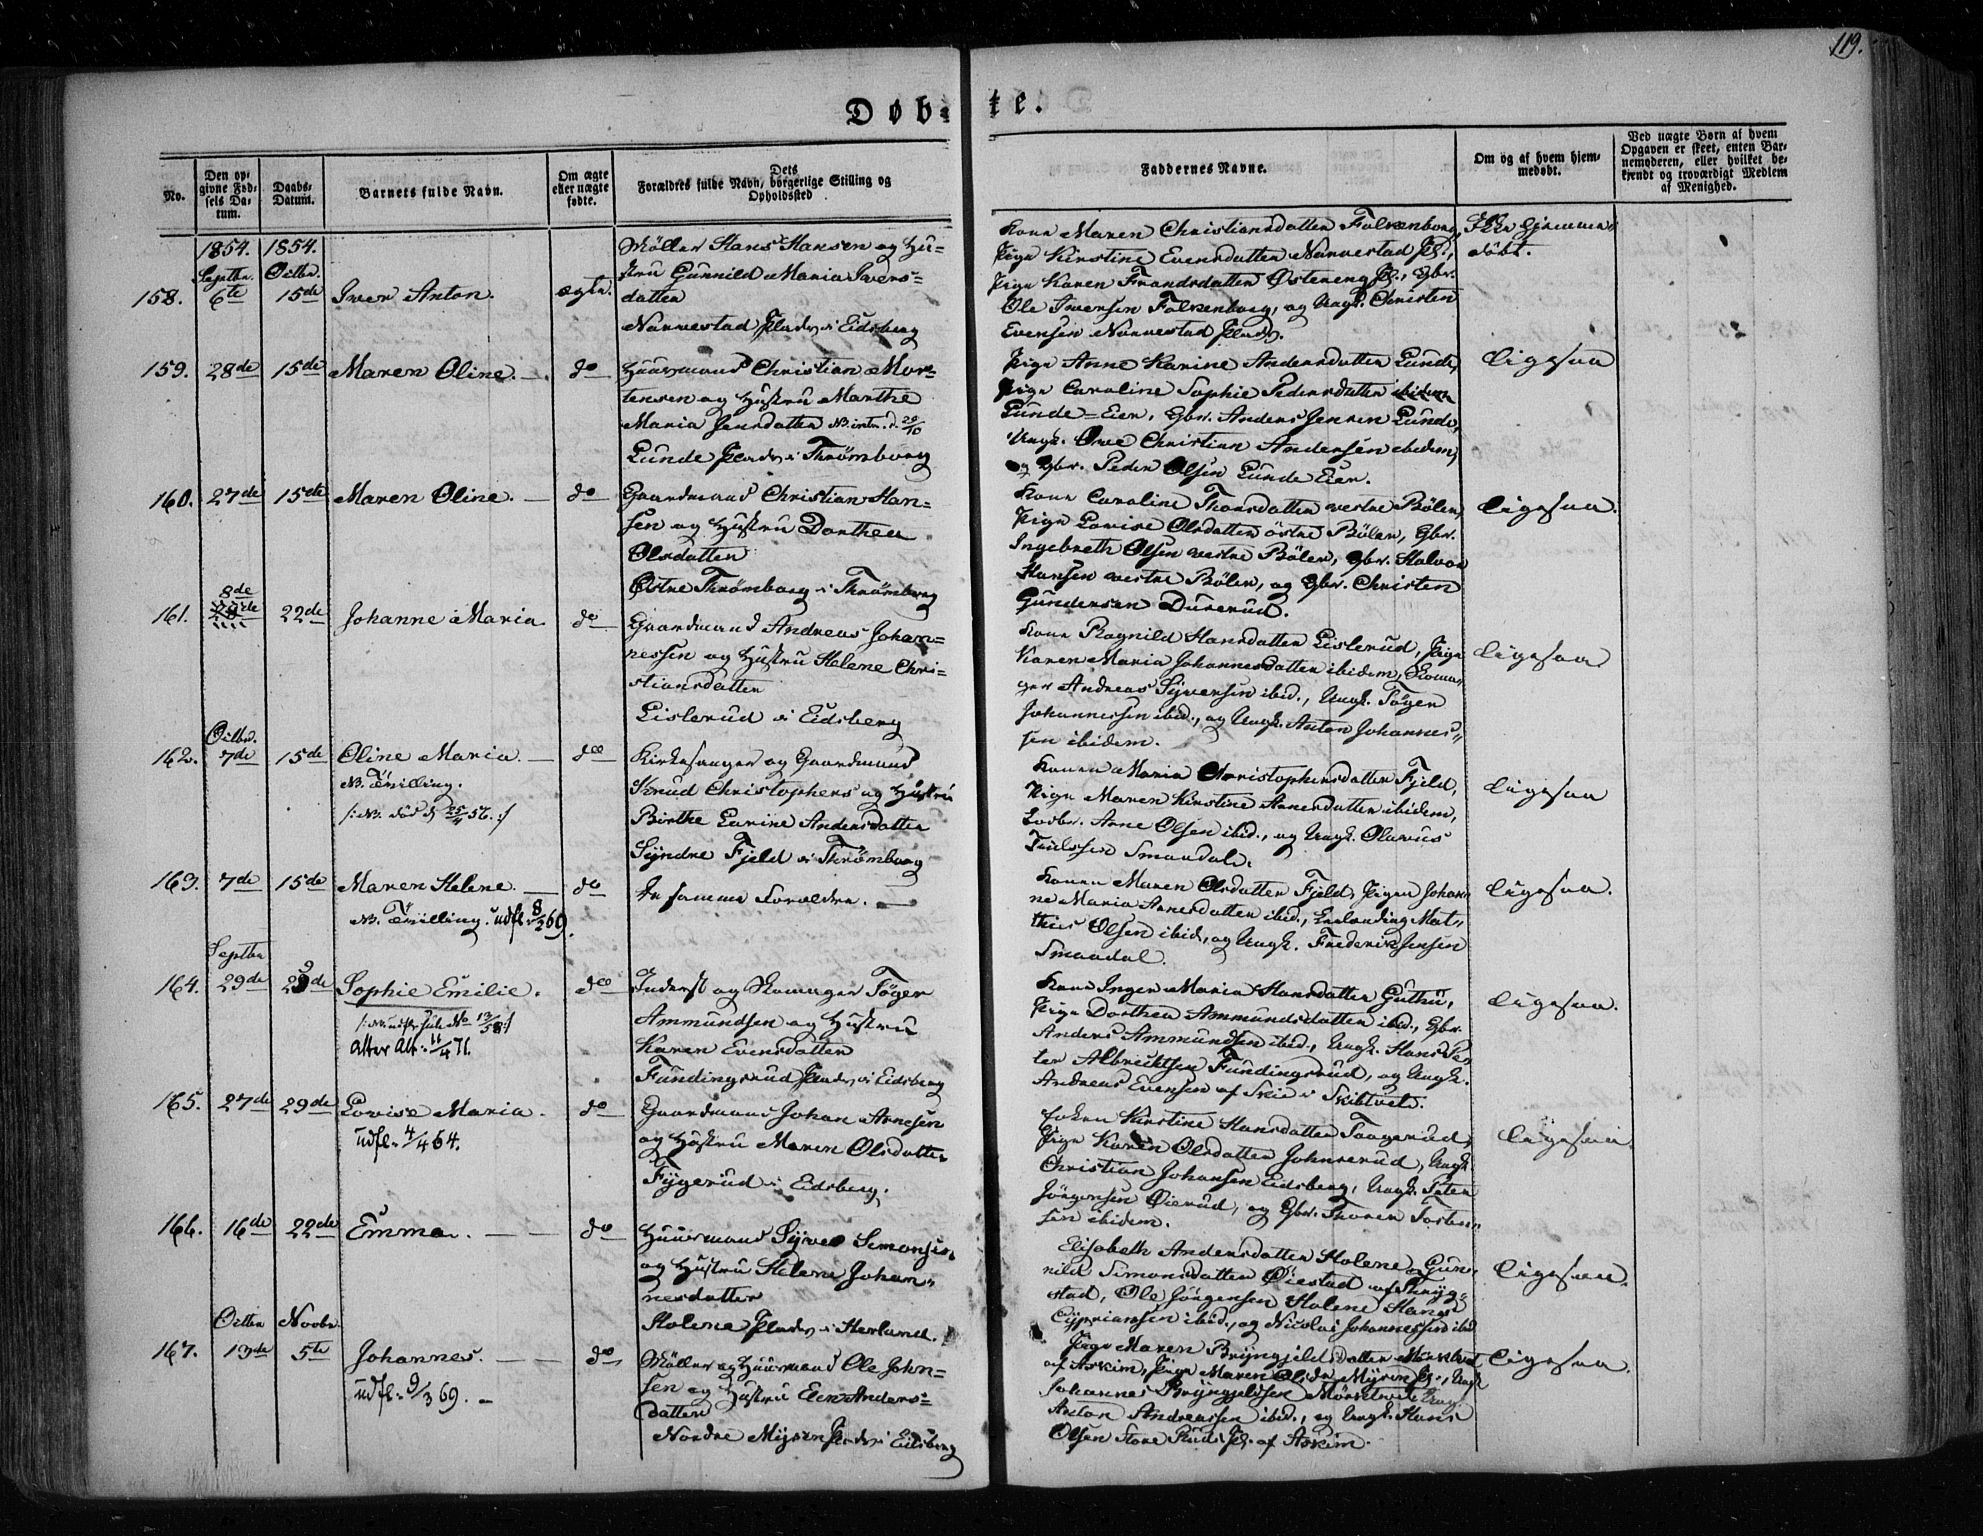 119.
Døbte.
No.
Den opgivne Fødsels Datum.
Daabs-Datum.
Barnets fulde Navn.
Om ægte eller uægte fødte.
Dets Forældres fulde Navn, borgerlige Stilling og Opholdssted
Faddernes Navne.
Om og af hvem hjemmedøbt.
Ved uægte Børn af hvem Opgaven er skeet, enten Barnemoderen, eller hvilket bekjendt og troværdigt Medlem af Menighed.
1854. 1854.
Septbr. Octbr.
158. 6te 15de Iver Anton. ægte.
Møller Hans Hansen og Hu-
stru Gunnild Maria Ivers-
datter
Narvestad Plads i Eidsberg
Kone Maren Christiansdatter Falkenborg,
Pige Kirstine Evensdatter Narvestad Pl.,
Pige Karen Frandsdatter Østereng Pl., Gbr.
Ole Iversen Falkenborg, og Ungk. Christen
Evensen Narvestad Plads.
Ikke hjemme-
døbt.
159. 28de 15de Maren Oline. do
Huusmand Christian Mor-
tensen og Hustru Marthe
Maria Jensdatter NB. intr. d. 29/10
Lunde Plads i Thrømborg
Pige Anne Karine Andersdatter Lunde,
Pige Caroline Sophie Pedersdatter
Lunde-Eier, Gbr. Anders Jensen Lunde,
Ungk. Ove Christian Andersen ibidem,
og Gbr. Peder Olsen Lunde Eier.
Ligesaa
160. 27de 15de Maren Oline. do
Gaardmand Christian Han-
sen og Hustru Dorthea
Olsdatter
Østre Thrømborg i Thrømborg
Kone Caroline Thorsdatter vestre Bølen,
Pige Lovise Olsdatter østre Bølen, Gbr.
Ingebreth Olsen vestre Bølen, Gbr. Halvor
Hansen vestre Bølen, og Gbr. Christen
Gundersen Dúserud.
Ligesaa.
8de
161. 22de Johanne Maria do
Gaardmand Andreas Johan-
nessen og Hustru Helene Chri-
stiansdatter
Lislerud i Eidsberg
Kone Ragnild Hansdatter Lislerud, Pige
Karen Maria Johannesdatter ibidem, Skoma-
ger Andreas Syversen ibid., Ungk. Tøger
Johannessen ibid., og Ungk. Anton Johannes-
sen ibidem.
Ligesaa
Octbr.
162. 7de 15de Oline Maria. do
NB. Tvilling.
/: NB. død d. 25/4 56. :/
Kirkesanger og Gaardmand
Knud Christophers og Hustru
Birthe Larine Andersdatter
Syndre Fjeld i Thrømborg
Konen Maria Christophersdatter Fjeld,
Pige Maren Kirstine Arnesdatter ibidem,
Arne Olsen ibid., og Ungk. Olavus
Trulssen Smaadal.
Ligesaa
163. 7de 15de Maren Helene. do
NB. Tvilling. udfl. 8/2 69.
De samme Forældre.
Konen Maren Olsdatter Fjeld, Pigen Johan-
ne Maria Arnesdatter ibid., Mat-
thies Olsen ibid., og Ungk. Frederik Jensen
Smaadal.
Ligesaa.
Septbr
164. 29de 29de Sophie Emilie. do
13/58 :/
atter Att. 11/4 71.
Inderst og Skomager Tøger
Ammundsen og Hustru
Karen Evensdatter
Fundingsrud Plads i Eidsberg
Kone Inger Maria Hansdatter Guthu,
Pige Dorthea Ammundsdatter ibid., Gbr.
Anders Ammundsen ibid., Ungk. Hans Pe-
ter Albrecktsen Fundingsrud, og Ungk.
Andreas Evensen af Skie i Skibtvet.
Ligesaa.
165. 27de 29de Lovise Maria. do
udfl. 4/4 64.
Gaardmand Johan Arnesen
og Hustru Maren Olsdatter
Fygerud i Eidsberg.
Enken Kirstine Hansdatter Taagerud,
Pige Karen Olsdatter Johnserud, Ungk.
Christian Johansen Eidsberg, Ungk. Peter
Jørgensen Øierud, og Gbr. Thoren Torsten-
sen ibidem.
Ligesaa.
166. 16de 22de Emma. do
Huusmand Syver Simonsen
og Hustru Helene Johan-
nesdatter
Holene Plads i Herland.
Elisabeth Andersdatter Holene, Gun-
nild Simonsdatter Øiestad af Tryg-
stad, Ole Jørgensen Holene, Hans
Cyprianssen ibid., og Nicolai Johannessen ibid
Ligesaa.
Octbr Novbr.
167. 13de 5te Johannes. do
udfl. 9/3 69.
Møller og Huusmand Ole John-
sen og Hustru Elen Anders-
datter
Nordre Mysen Plads i Eidsberg
Pige Maren Bryngjeldsdatter Mørktvet
af Askim, Pige Maren Olsdr Mysen Pl., Ungk
Johannes Bryngjeldsen Mørktvet, Ung.
Anton Andreassen ibid., og Ungk. Hans
Olsen Store Rud Pl. af Askim.
Ligesaa.